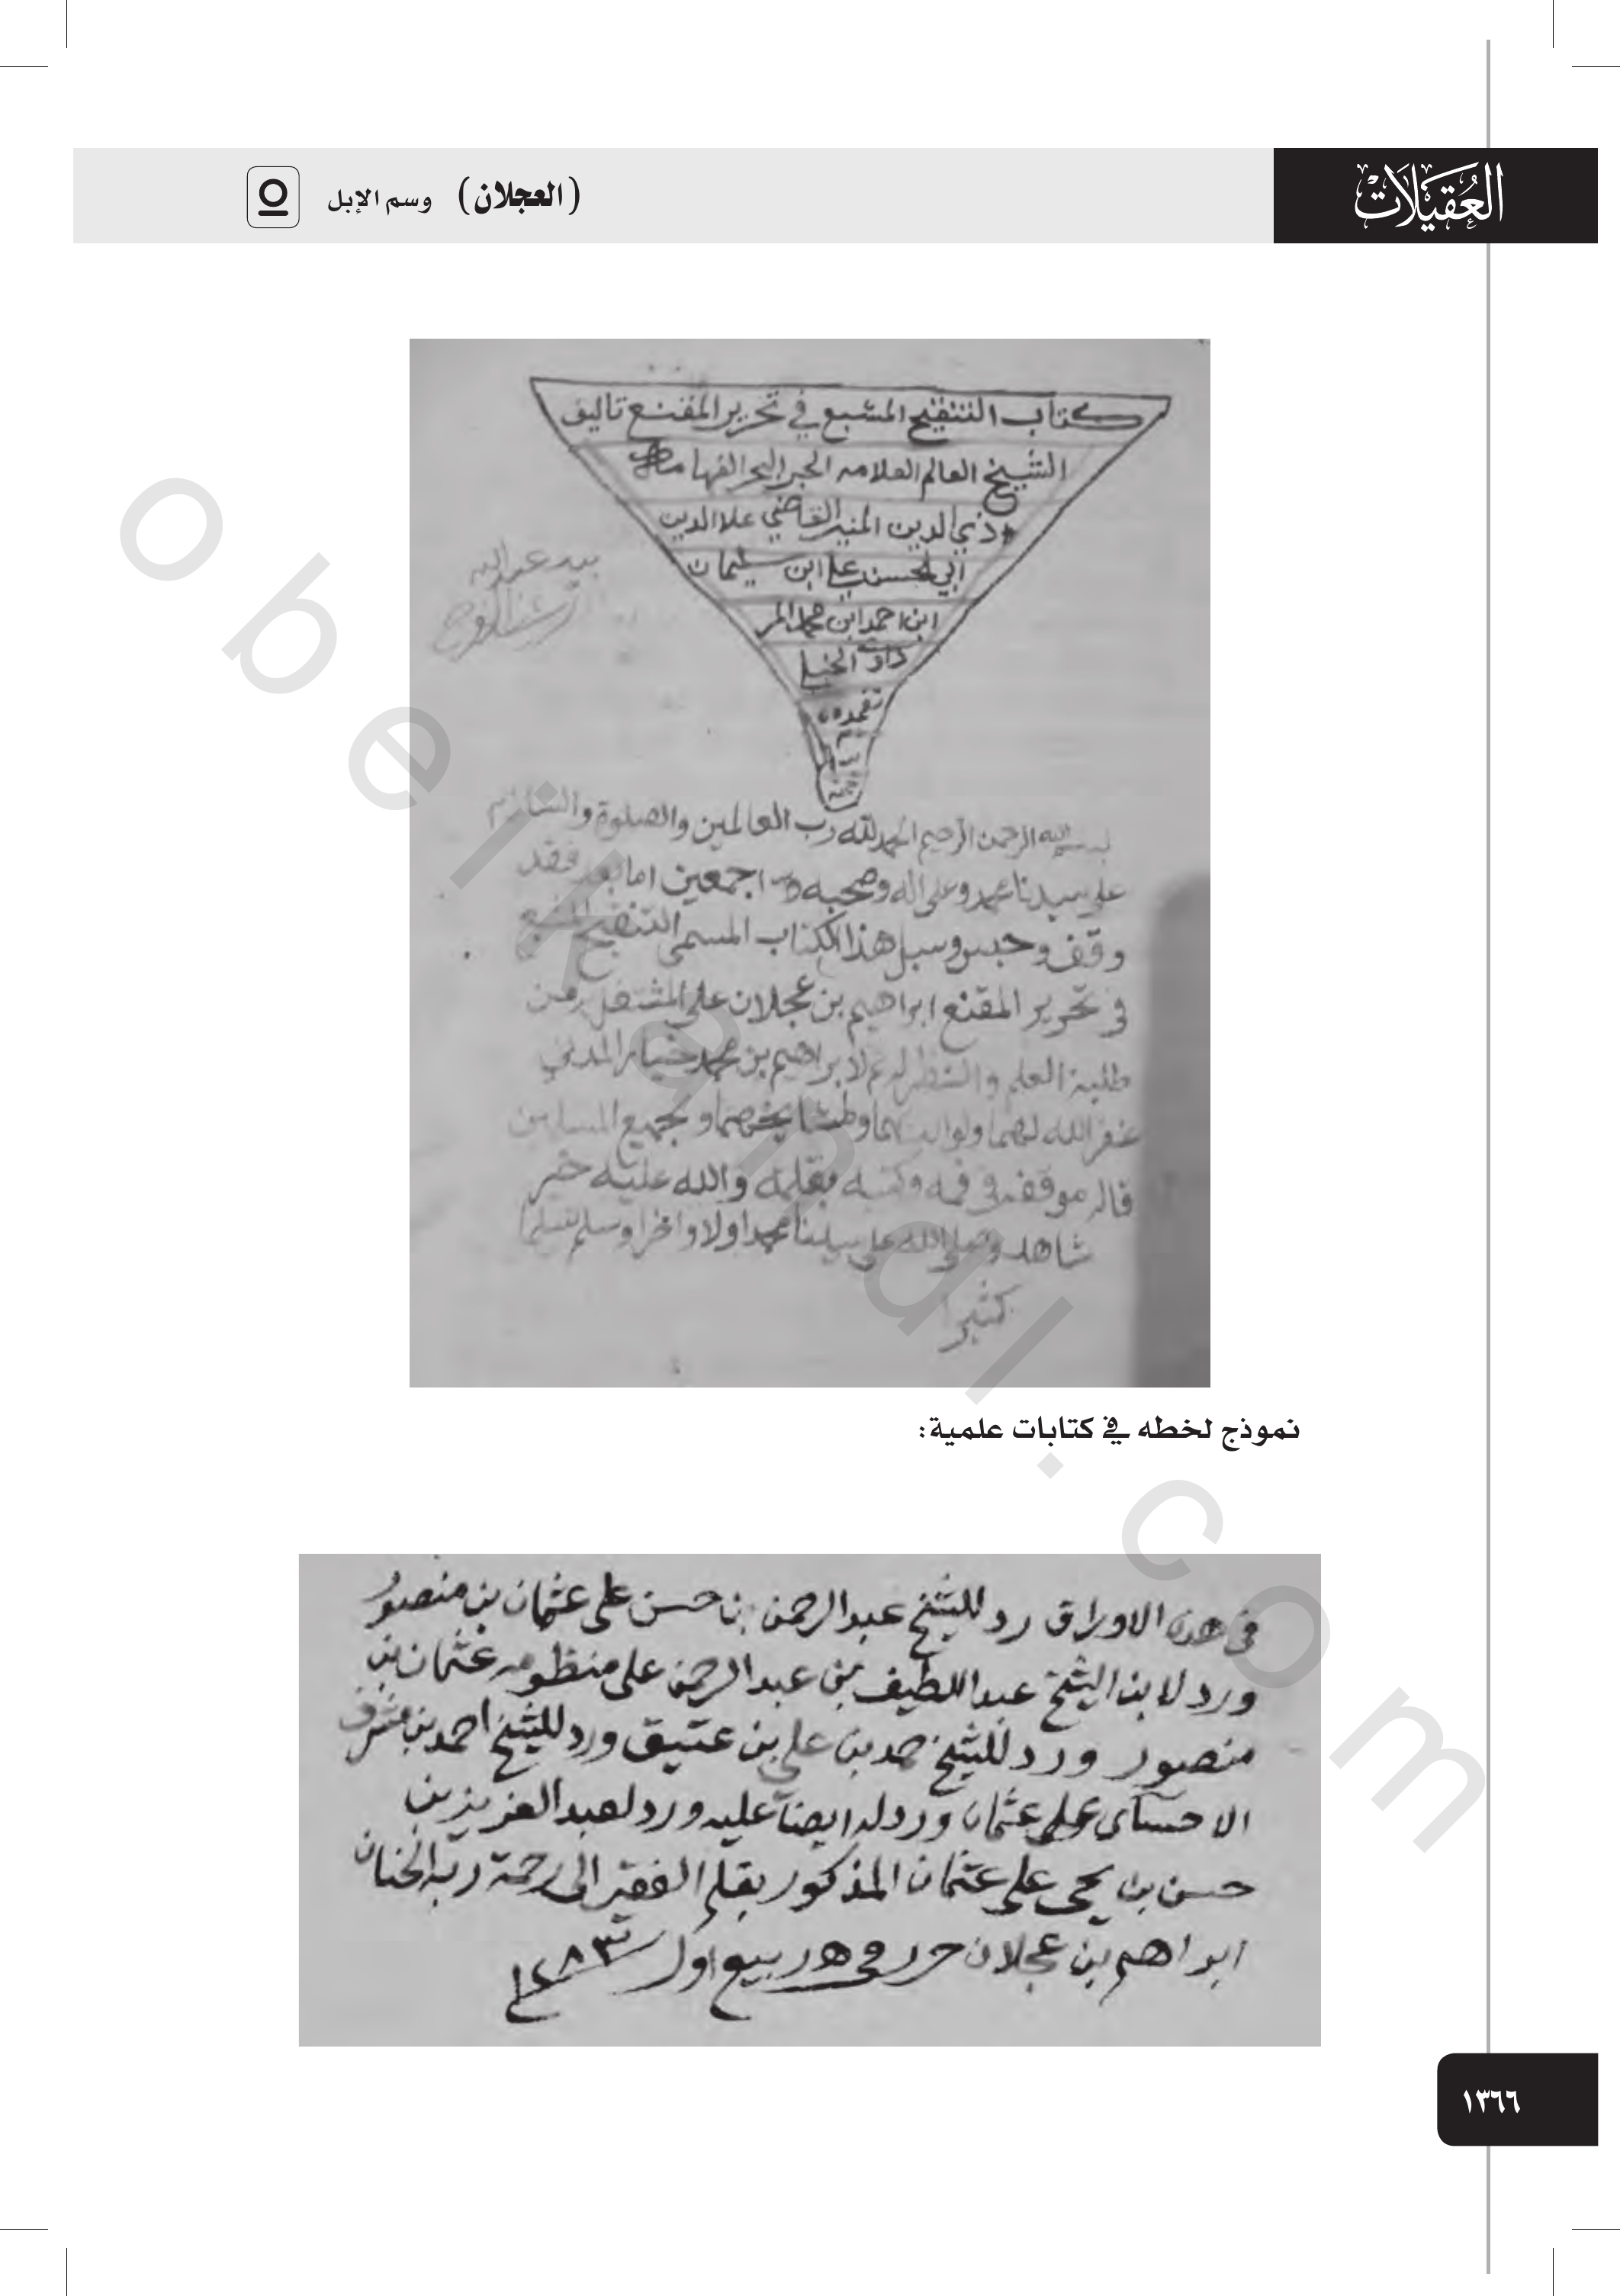 العُقيلات
(العجلان) وسم الإبل
كتاب التنقيح المشبع في تحرير المقنع تاليف
الشيخ العالم العلامه الحبر البحر الفهامه
ذي الدين المنير القاضي علا الدين
ابي الحسن علي ابن سليمان
ابن احمد ابن محمد المر
داوي الحنبلي
تغمده
بيد عبدالله
بسم الله الرحمن الرحيم الحمد لله رب العالمين والصلوة والسلام
على سيدنا محمد وعلى اله وصحبه اجمعين اما بعد فقد
وقف وحبس وسبل هذا الكتاب المسمى التنقيح المشبع
في تحرير المقنع ابراهيم بن عجلان على المشتغل من
طلبة العلم والنظر لابراهيم بن محمد
غفر الله لهما ولوالديهما ولمشايخهما ولجميع المسلمين
قاله موقفه في فمه وكتبه بقلمه والله عليه خير
شاهد وصلى الله على سيدنا محمد اولا واخرا وسلم تسليما
كثيرا
نموذج لخطه في كتابات علمية:
في هذه الاوراق رد للشيخ عبدالرحمن بن حسن على عثمان بن منصور
ورد لابنه الشيخ عبداللطيف بن عبدالرحمن على منظومه عثمان بن
منصور ورد للشيخ حمد بن علي بن عتيق ورد للشيخ احمد بن مشرف
الاحسآى على عثمان ورد له ايضاً عليه ورد لعبدالعزيز بن
حسن بن يحى على عثمان المذكور بقلم الفقير الى رحمة ربه الحنان
ابراهيم بن عجلان حرر في ٥ ربيع اول ١٢٨٣
١٣٦٦
obeikandl.com